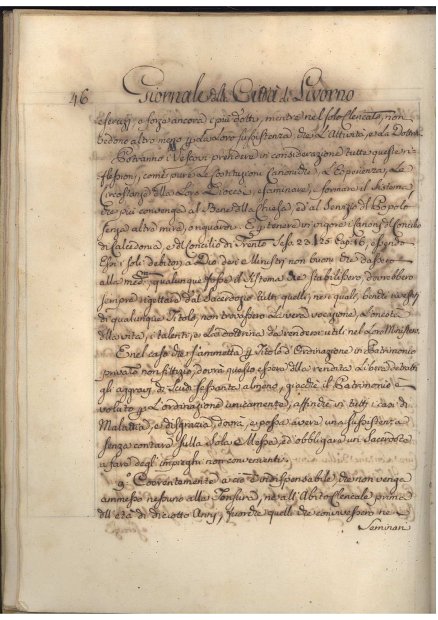 46 Giornale della Città di Livorno
esercizj, e forse ancora i più dotti, mentre nel solo Clericato, non
vedono altro meno, p. la loro sussistenza che l'Attività, e la Dottrina
Potranno i Vescovi prendere in considerazione tutte queste ri-
flessioni, come pure le Costituzioni Canoniche, l'Esperienza, e le
Circostanze della loro Diocesi, esaminare, e formare il sistema
che più convenga al Bene della Chiesa, ed al Servizio del Popolo
senza altra mira, o riguardo. E p. tenere in vigore i Canoni del Concilio
di Calcedonia, e del Concilio di Trento Sess. 23 Cap. 16, essendo
essi i soli debitori a Dio dei Ministri non buoni che dassero
alla med.ma, qualunque fosse il sistema che stabilissero, dovrebbero
sempre rigettare dal Sacerdozio tutti quelli, nei quali, benché provvisti
di qualunque Titolo, non trovassero la vera vocazione, l'onestà
della vita, i talenti, e la dottrina da rendersi utili nel loro Ministero.
E nel caso che si ammetta p. Titolo d'Ordinazione un Patrimonio
privato non fittizio, dovrà questo essere della rendita libera detratti
gli aggravj di Scudi sessanta almeno, giacché il Patrimonio è
voluto p. l'ordinazione unicamente, affinché in tutti i casi di
Malattia, e disgrazia, dorma, e possa avere una sussistenza
senza contare sulla sola Messa, ed obbligare un Sacerdote
a fare degli impieghi non convenienti.
9.° Coerentemente a ciò è indispensabile che non venga
ammesso nessuno alla Tonsura, ne all'Abito Clericale prima
dell'età di diciotto Anni, fuorché quelli che convivessero ne
Seminari